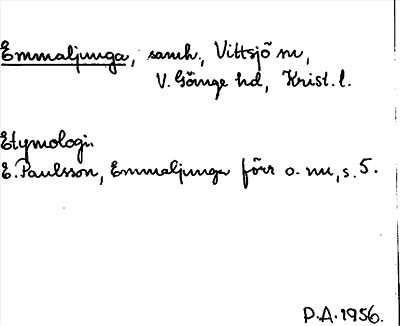 Emmaljunga, samh., Vittsjö sn,
V. Göinge hd, Krist. l.
Etymologi:
E. Paulsson, Emmaljunga förr o. nu, s. 5.
P.A. 1956.